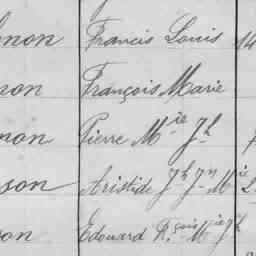 non Francis Louis 14
non François Marie
non Pierre Mie Jh
son Aristide Jh Jn Mie
son Edouard Fçois Mie Jh